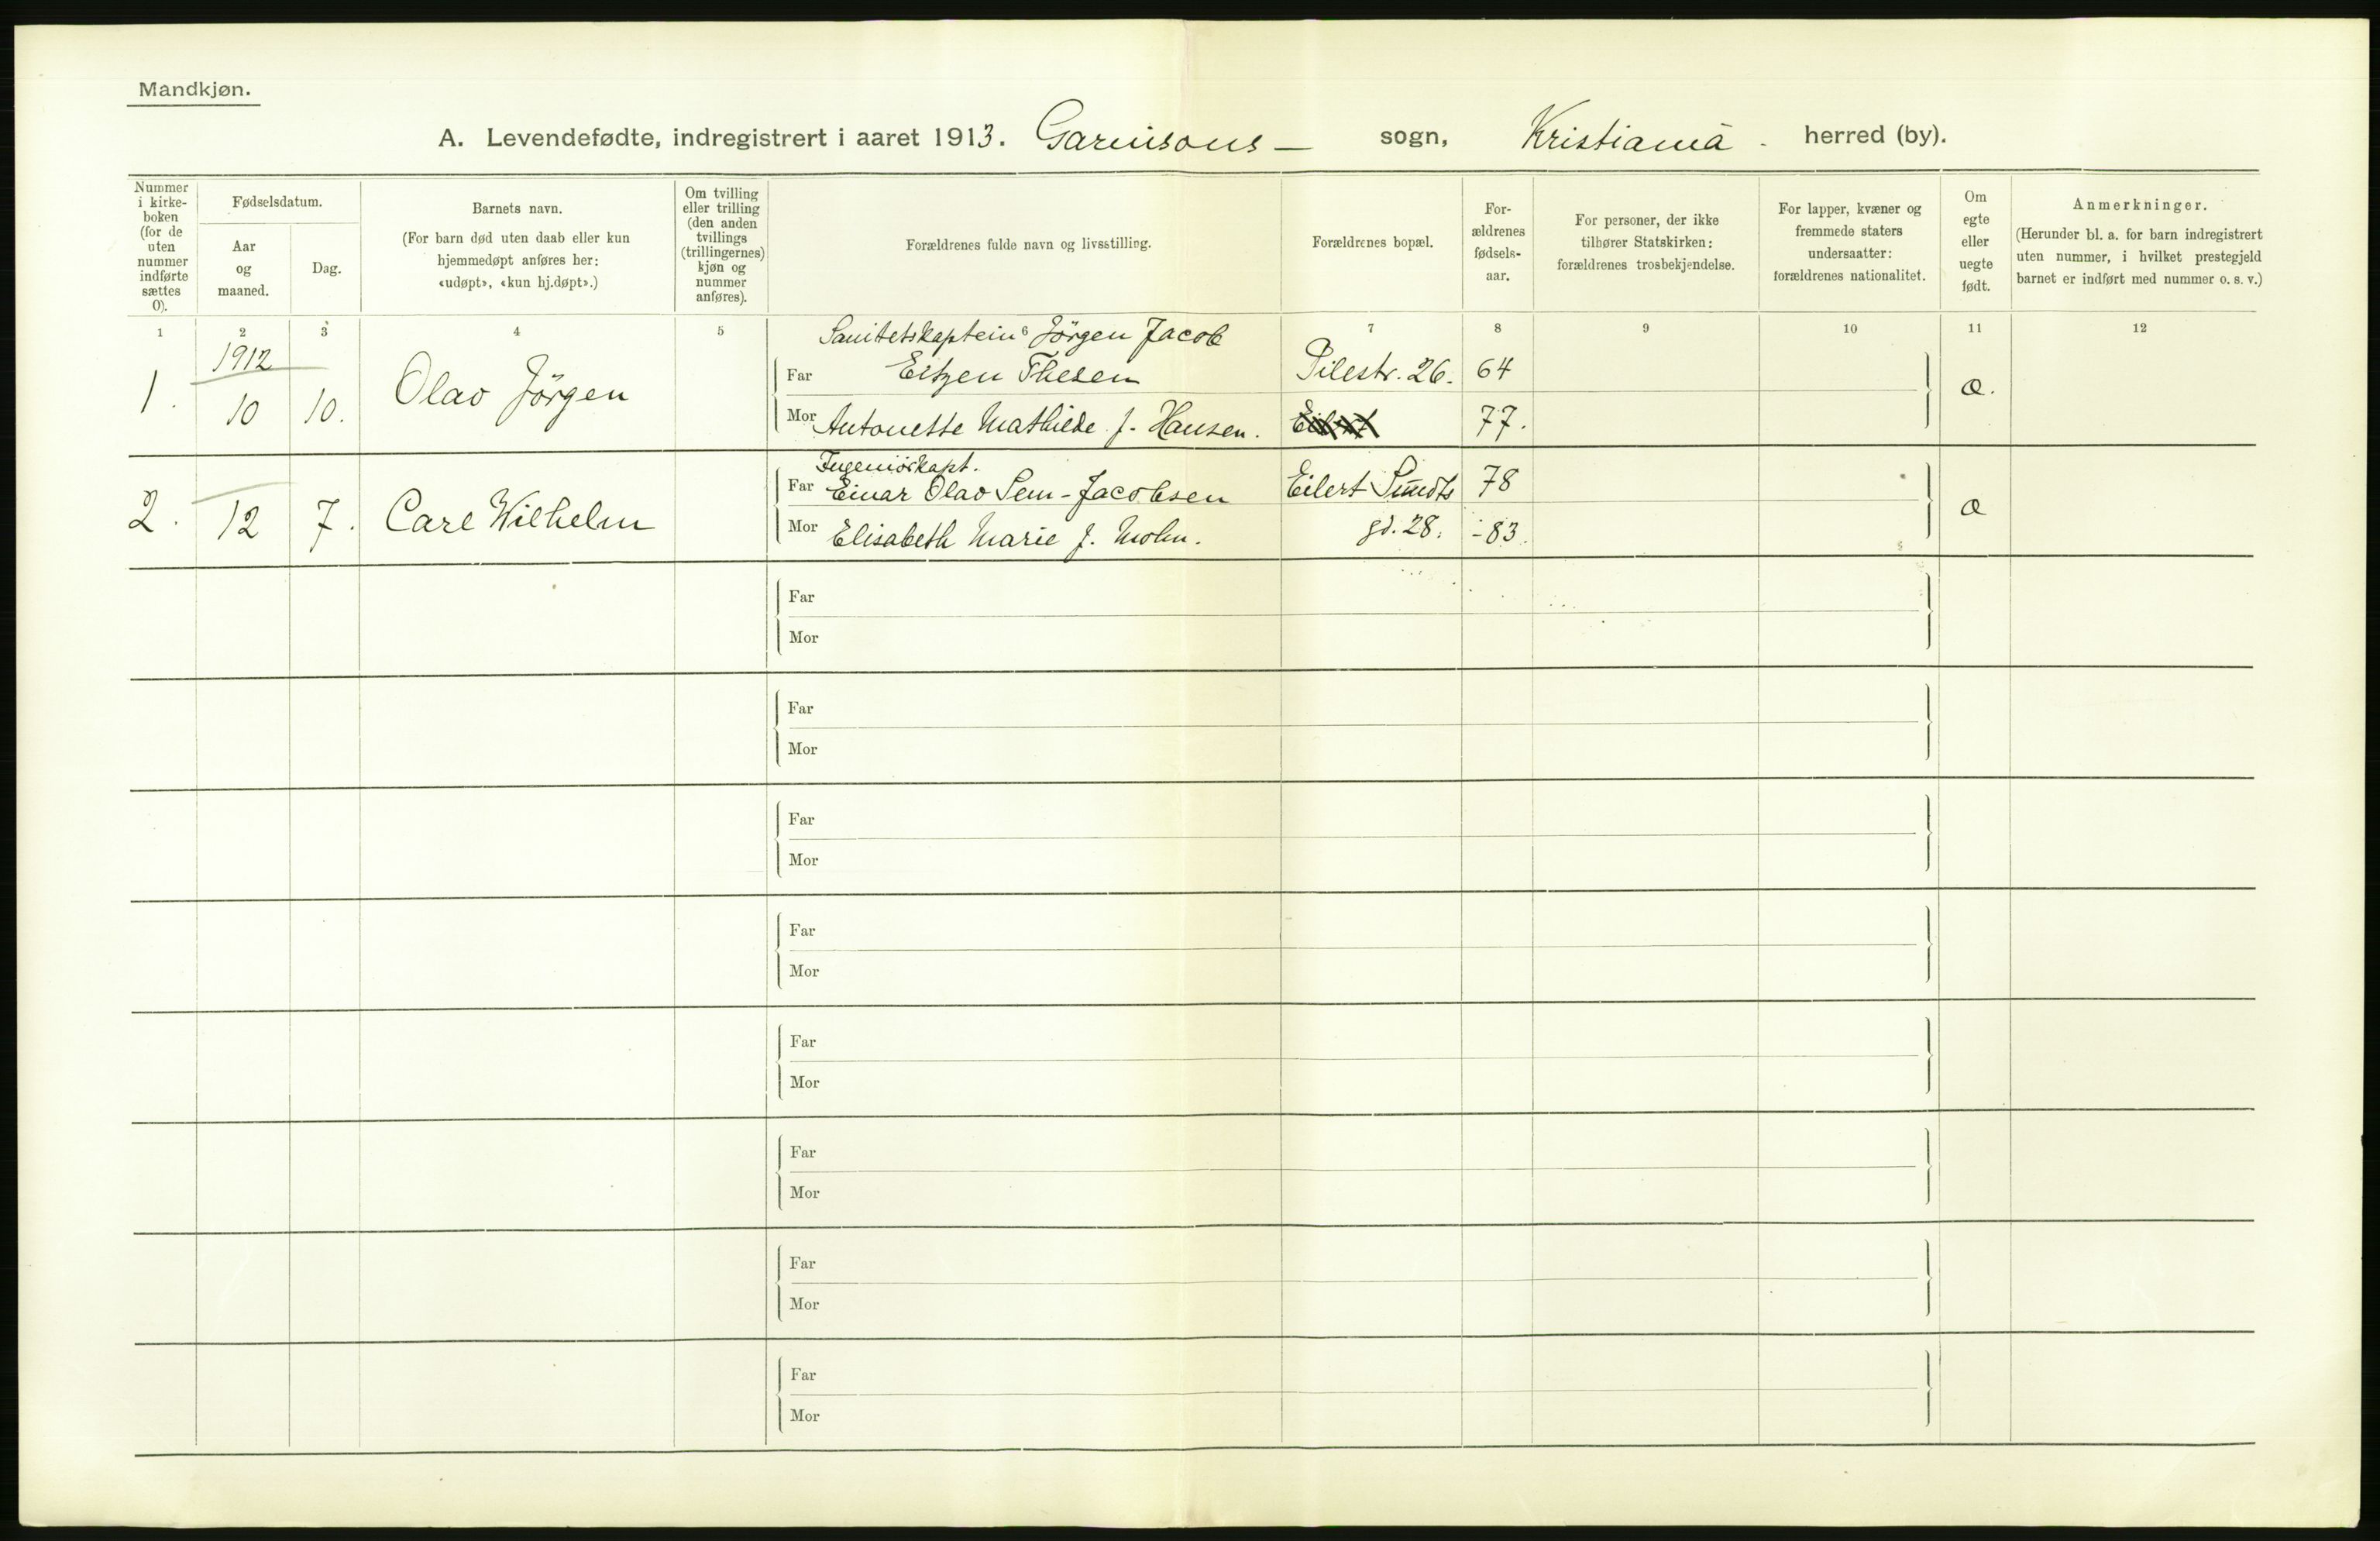 Mandkjøn.
A. Levendefødte, indregistrert i aaret 1913. Garnisons — sogn, Kristiania - herred (by).
Nummer
i kirke-
boken
(for de
uten
nummer
indførte
sættes
0).
Fødselsdatum.
Aar
og
maaned.
Dag.
Barnets navn.
(For barn død uten daab eller kun
hjemmedøpt anføres her:
«udøpt», «kun hj.døpt».)
Om tvilling
eller trilling
(den anden
tvillings
(trillingernes)
kjøn og
nummer
anføres).
Forældrenes fulde navn og livsstilling.
Forældrenes bopæl.
For-
ældrenes
fødsels-
aar.
For personer, der ikke
tilhører Statskirken:
forældrenes trosbekjendelse.
For lapper, kvæner og
fremmede staters
undersaatter:
forældrenes nationalitet.
Om
egte
eller
uegte
født.
Anmerkninger.
(Herunder bl. a. for barn indregistrert
uten nummer, i hvilket prestegjeld
barnet er indført med nummer o. s. v.)
1 2 3 4 5 6 7 8 9 10 11 12
1912
1. 10 10. Olav Jörgen
Sanitetskaptein Jörgen Jacob
Far Eitzen Thesen Pilestr. 26. 64
Mor Antonette Mathilde f. Hansen. 77.
æ.
2. 12 7. Carl Wilhelm
Ingeniörkapt.
Far Einar Olav Sem-Jacobsen Eilert Sundts 78
Mor Elisabeth Marie f. Mohn. gd. 28. -83.
æ
Far
Mor
Far
Mor
Far
Mor
Far
Mor
Far
Mor
Far
Mor
Far
Mor
Far
Mor